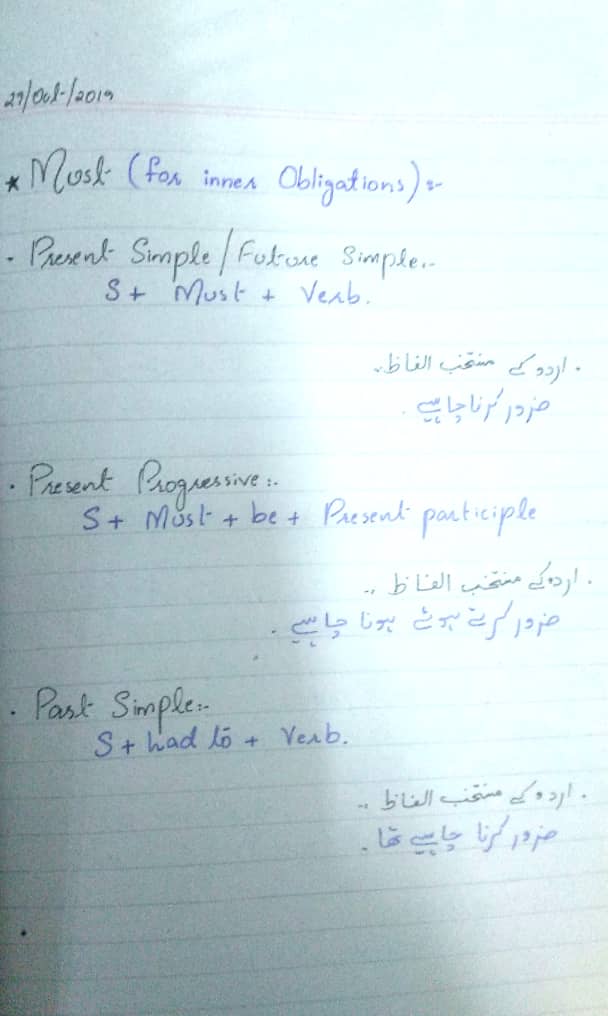 29/Oct/2019
* Must (for inner Obligations):-
. Present Simple/Future Simple:-
S + Must + Verb.
. اردو کے منتخب الفاظ :.
ضرور کرنا چاہیے .
. Present Progressive:-
S + Must + be + Present participle
. اردو کے منتخب الفاظ :.
ضرور کرتے ہوئے ہونا چاہیے .
. Past Simple:-
S + had to + Verb.
. اردو کے منتخب الفاظ :.
ضرور کرنا چاہیے تھا .